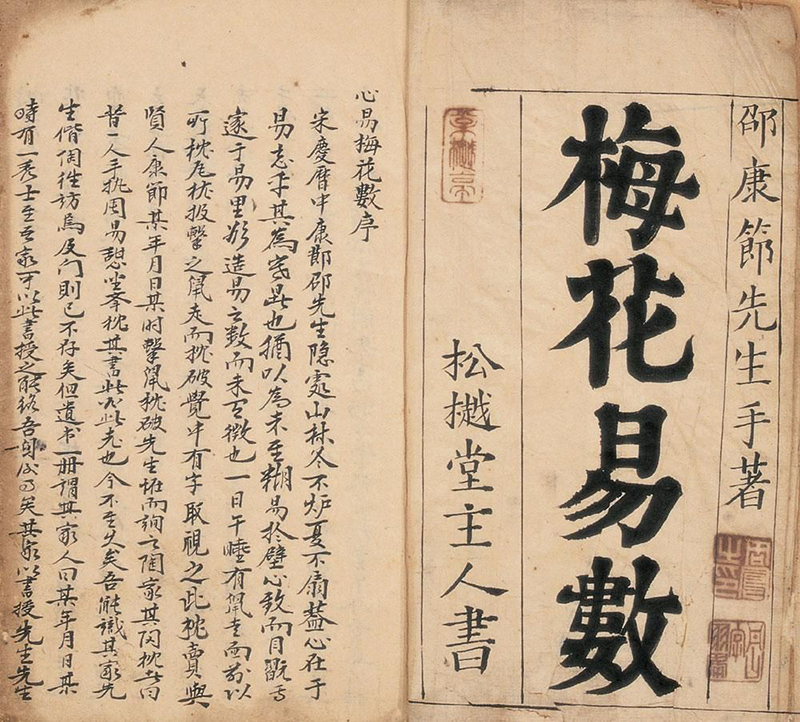 邵康節先生手著
梅花易數
松樾堂主人書
心易梅花數序
宋慶曆中康節邵先生隐處山林冬不炉夏不扇蓋心在于
易忘乎其為寒暑也猶以為未至糊易於壁心致而目翫焉
邃于易里欲造易之数而未百徵也一日午睡有鼠走而前以
所枕瓦枕投擊之鼠走而枕破覺中有字取視之此枕賣與
賢人康節某年月日某时擊鼠枕破先生恠而詢之陶家其陶枕者曰
昔一人手执周易憩坐举枕其書此必此老也今不至久矣吾能識其家先
生偕陶往訪焉及门則已不存矣但遺书一册謂其家人曰某年月日某
時有一秀士至吾家可以此書授之能終吾身矣其家以書授先生先生